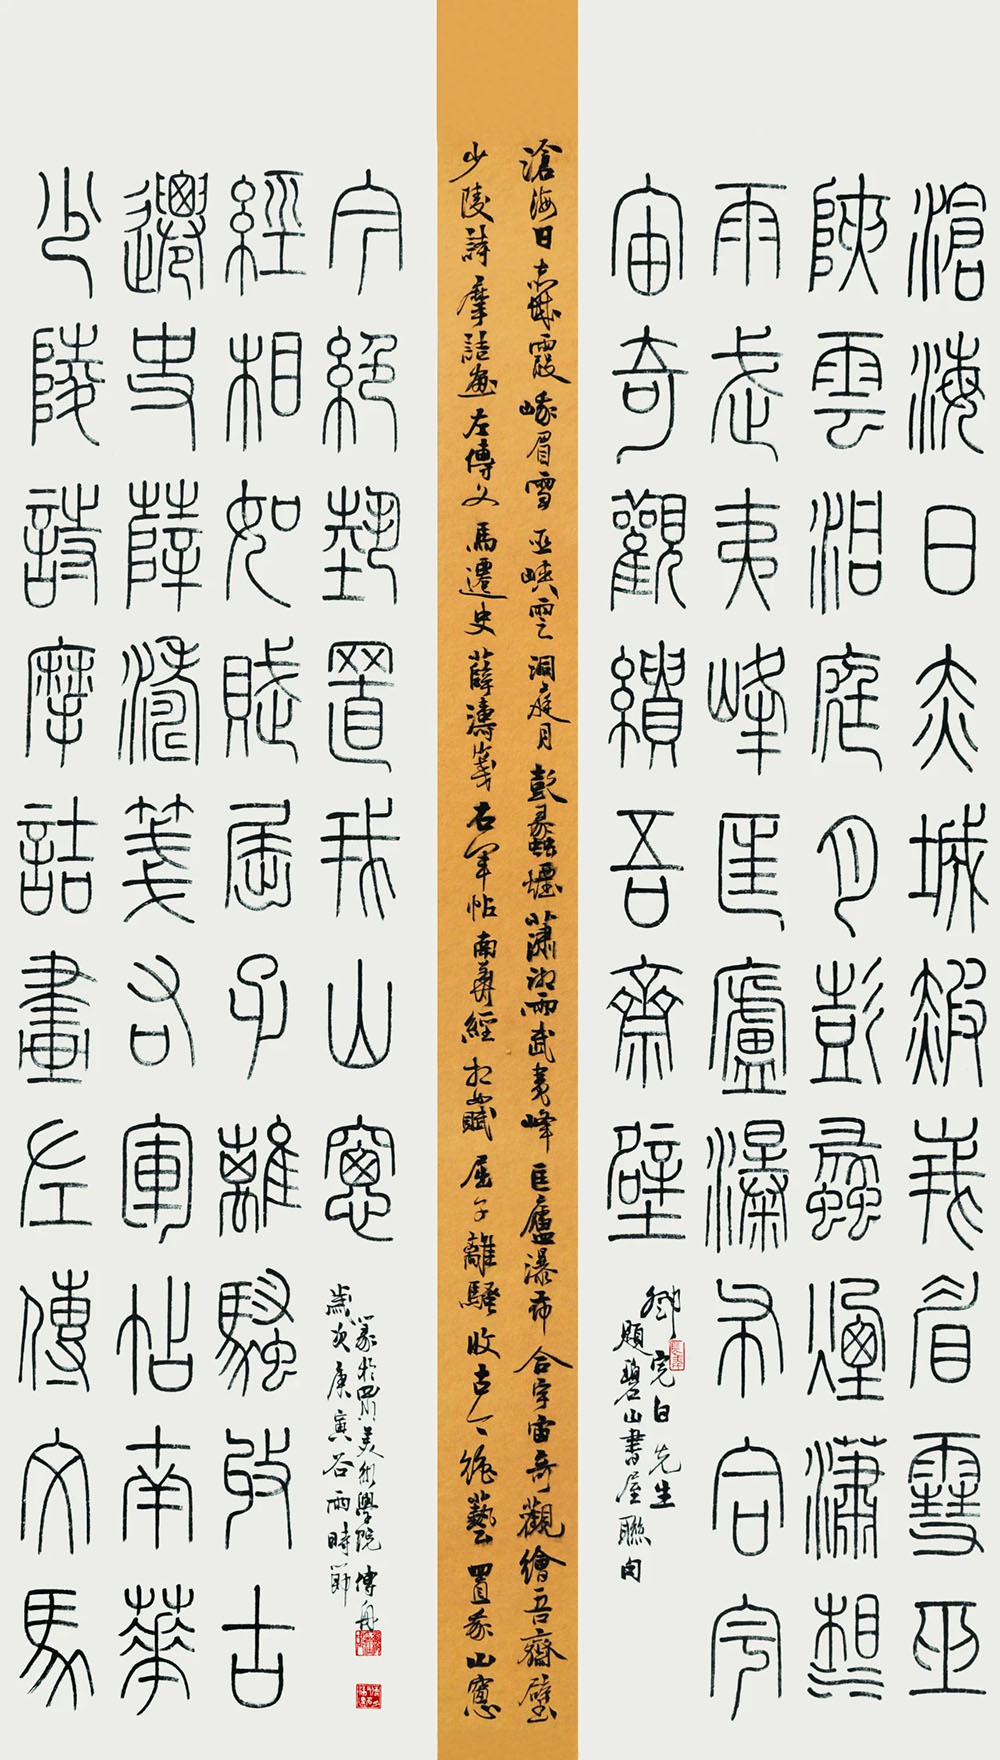 滄海日赤城霞峨眉雪巫
峽雲洞庭月彭蠡煙瀟湘
雨武夷峰匡廬瀑布合宇
宙奇觀繢吾齋壁
鄧完白先生
題碧山書屋聯句
滄海日赤城霞峨眉雪巫峽雲洞庭月彭蠡煙瀟湘雨武夷峰匡廬瀑布合宇宙奇觀繪吾齋壁
少陵詩摩詰畫左傳文馬遷史薛濤箋右軍帖南華經相如賦屈子離騷收古今絕藝置我山窗
少陵詩摩詰畫左傳文馬
遷史薛濤箋右軍帖南華
經相如賦屈子離騷收古
今絕藝置我山窗
歲次庚寅谷雨時節
篆於四川美術學院傅舟